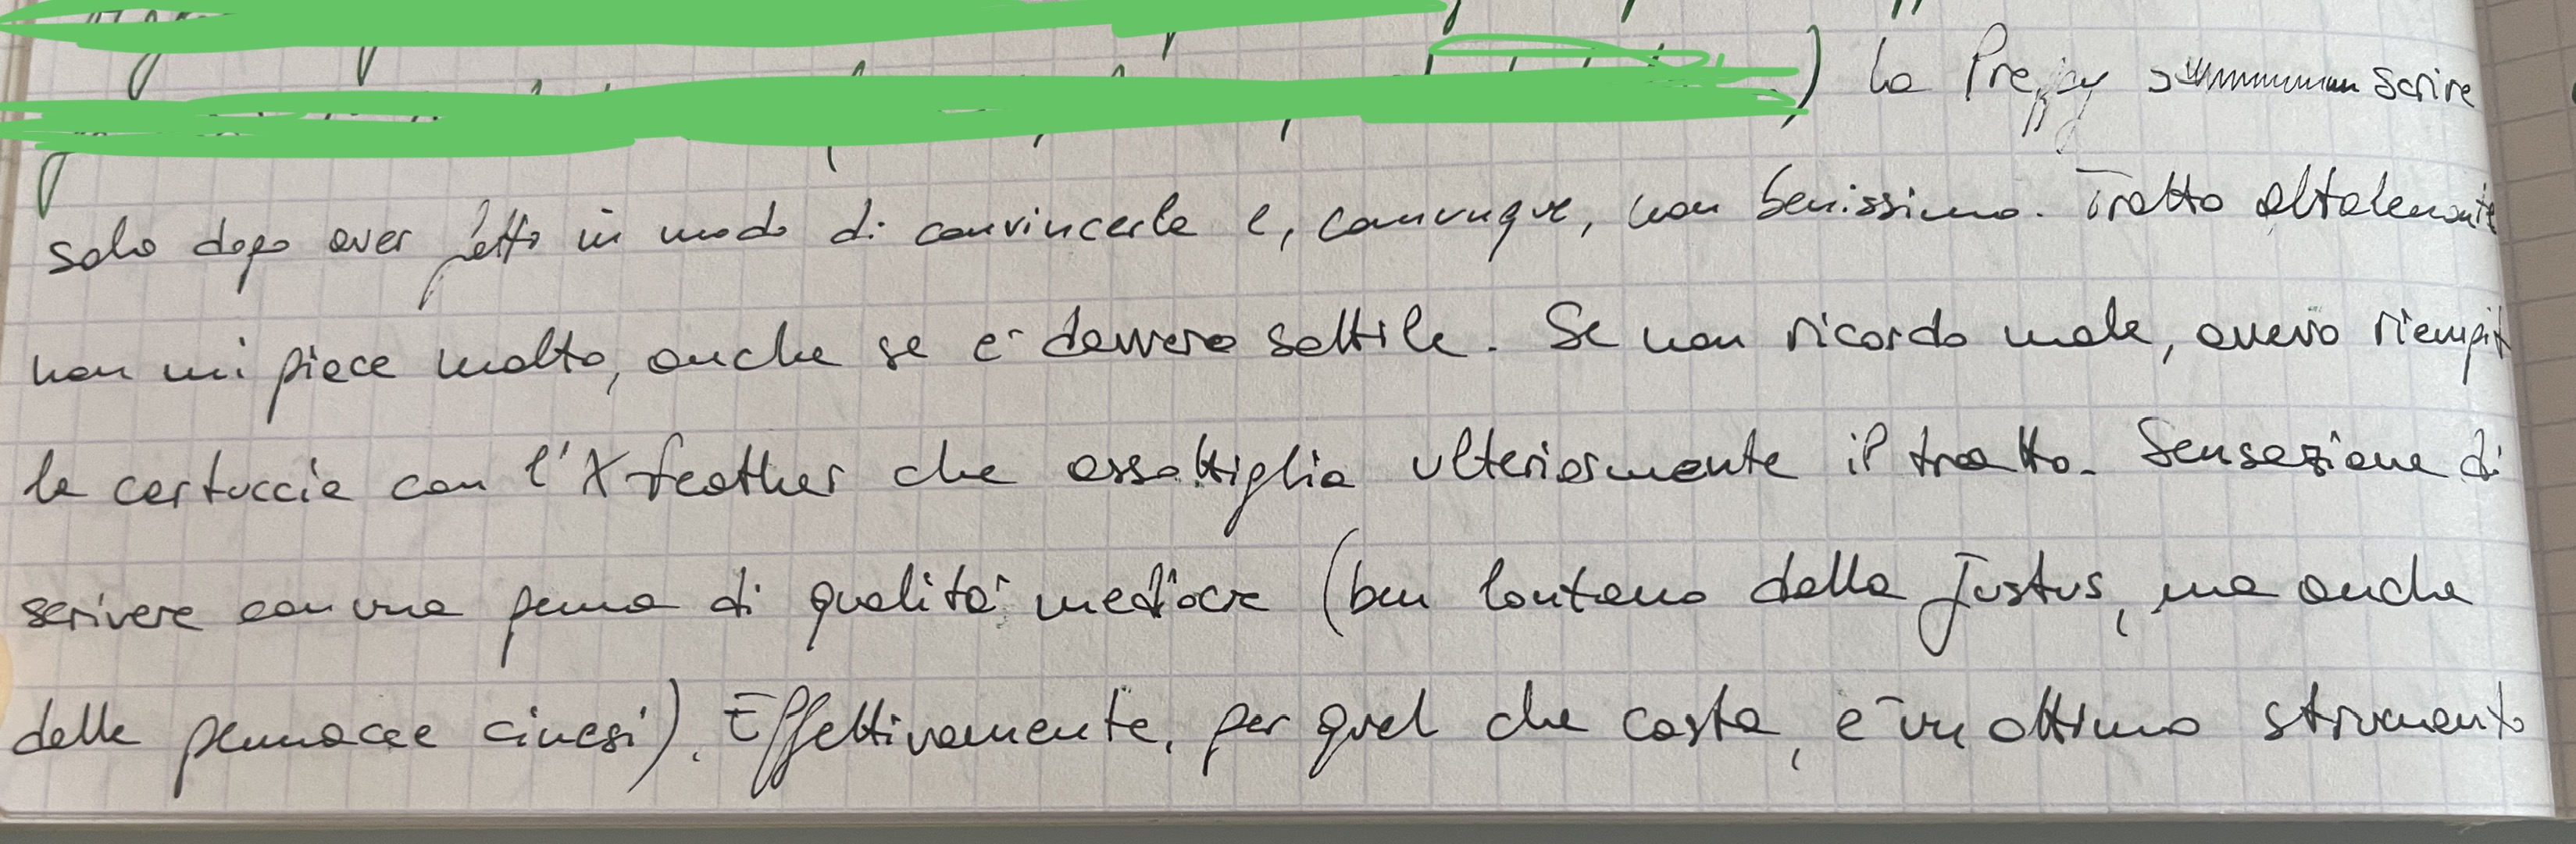 ) La Preppy scrive
solo dopo aver fatto in modo di convincerla e, comunque, non benissimo. Tratto altalenante
non mi piace molto, anche se è davvero sottile. Se non ricordo male, avevo riempit
la cartuccia con l'X-feather che assottiglia ulteriormente il tratto. Sensazione di
scrivere con una penna di qualità mediocre (ben lontano dalla Justus, ma anche
dalle pennacce cinesi). Effettivamente, per quel che costa, è un ottimo strumento